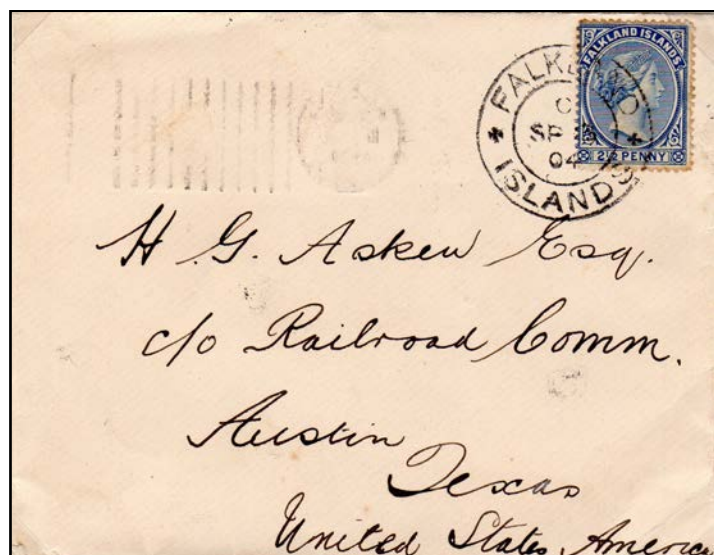 FALKLAND ISLANDS
2½ PENNY
FALKLAND
C
SP
04
ISLANDS
H. G. Askew Esq.
c/o Railroad Comm.
Austin
Texas
United States America